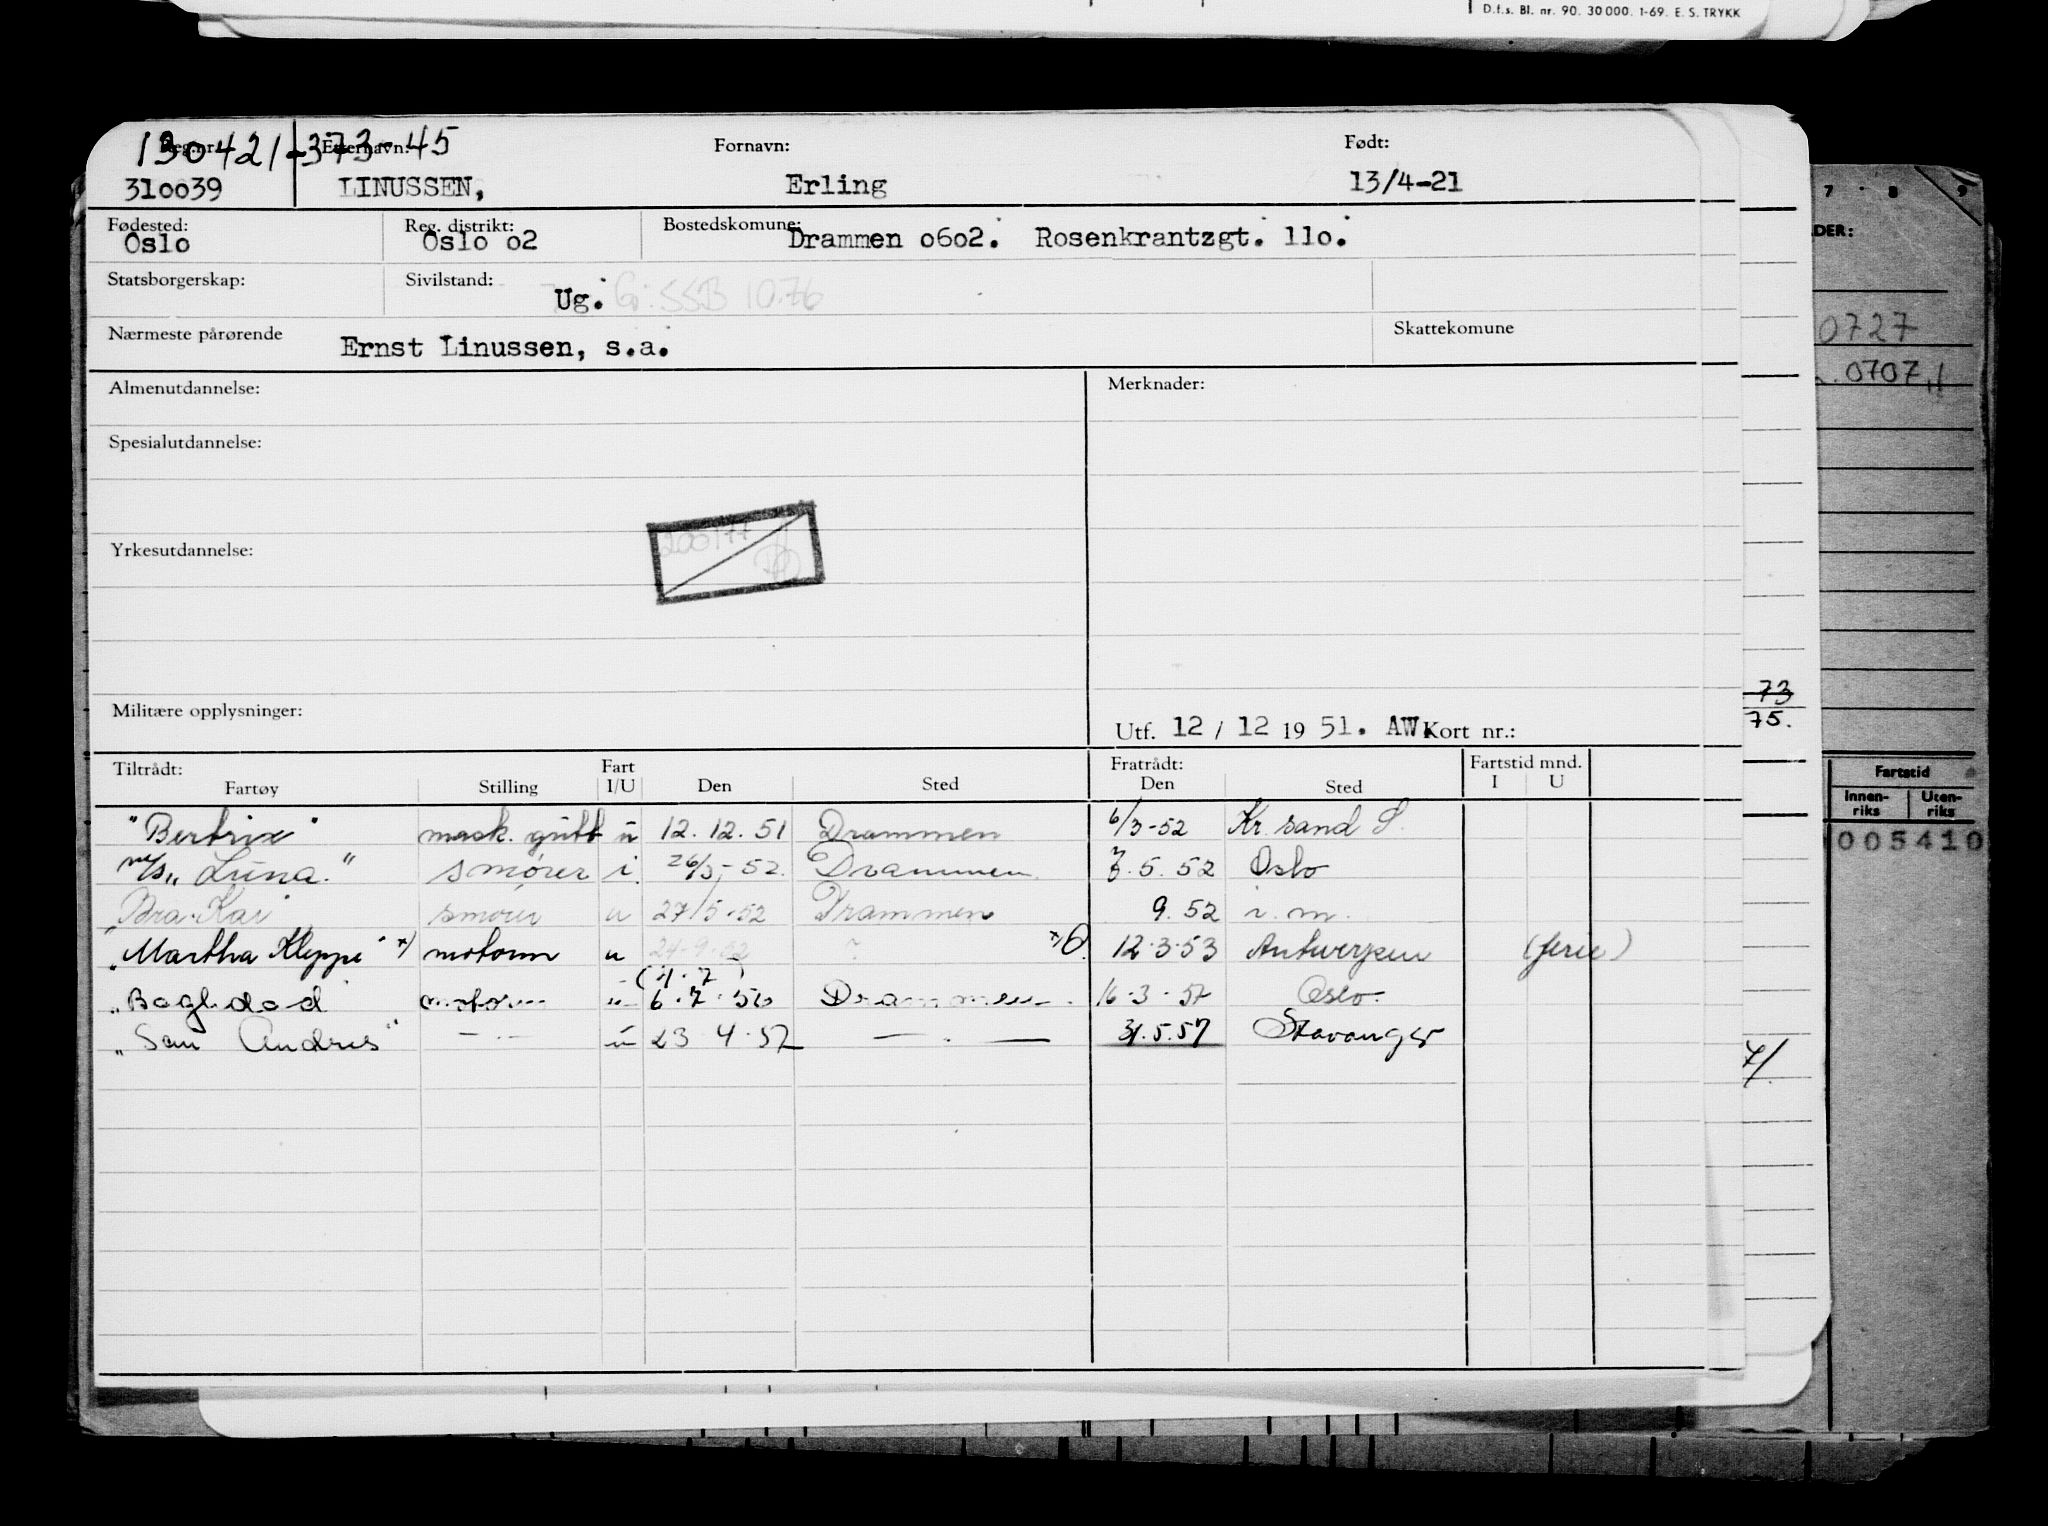 D.f.s. Bl. nr. 90. 30 000. 1-69. E. S. TRYKK
130421-373-45
Reg.nr. Etternavn: Fornavn: Født:
310039 LINUSSEN, Erling 13/4-21
Fødested: Reg. distrikt: Bostedskomune:
Oslo Oslo o2 Drammen o6o2. Rosenkrantzgt. 11o.
Statsborgerskap: Sivilstand:
Ug. G: SSB 10.76
Nærmeste pårørende Skattekomune
Ernst Linussen, s.a.
Almenutdannelse: Merknader:
Spesialutdannelse:
Yrkesutdannelse:
Militære opplysninger:
Utf. 12 / 12 19 51. AW. Kort nr.:
Tiltrådt: Fart Fratrådt: Fartstid mnd.
Fartøy Stilling I/U Den Sted Den Sted I U
"Bertrix" mask. gutt u 12.12.51 Drammen 6/3-52 Kr. sand S.
m/s "Luna." smører i 26/3-52. Drammen 7.5.52 Oslo
"Bra-Kar" smører u 27/5-52 Drammen 9.52 i.m.
"Martha Kleppe" x) motorm u 24-9-52 ? x) 12-3-53 Antwerpen (ferie)
(4.7)
"Baghdad" motorm u 6.7.56 Drammen 16-3-57 Oslo.
"San Andres" — " — u 23 4-57 — . — 31.5.57 Stavanger
7 8 9
DER:
0727
0707
73
75.
Fartstid
Innen-riks Uten-riks
005410